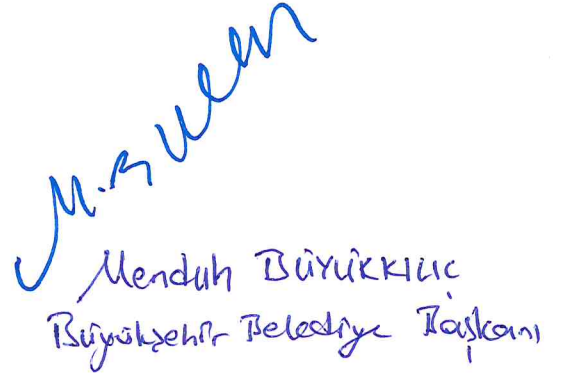 Menduh BÜYÜKKILIÇ
Büyükşehir Belediye Başkanı